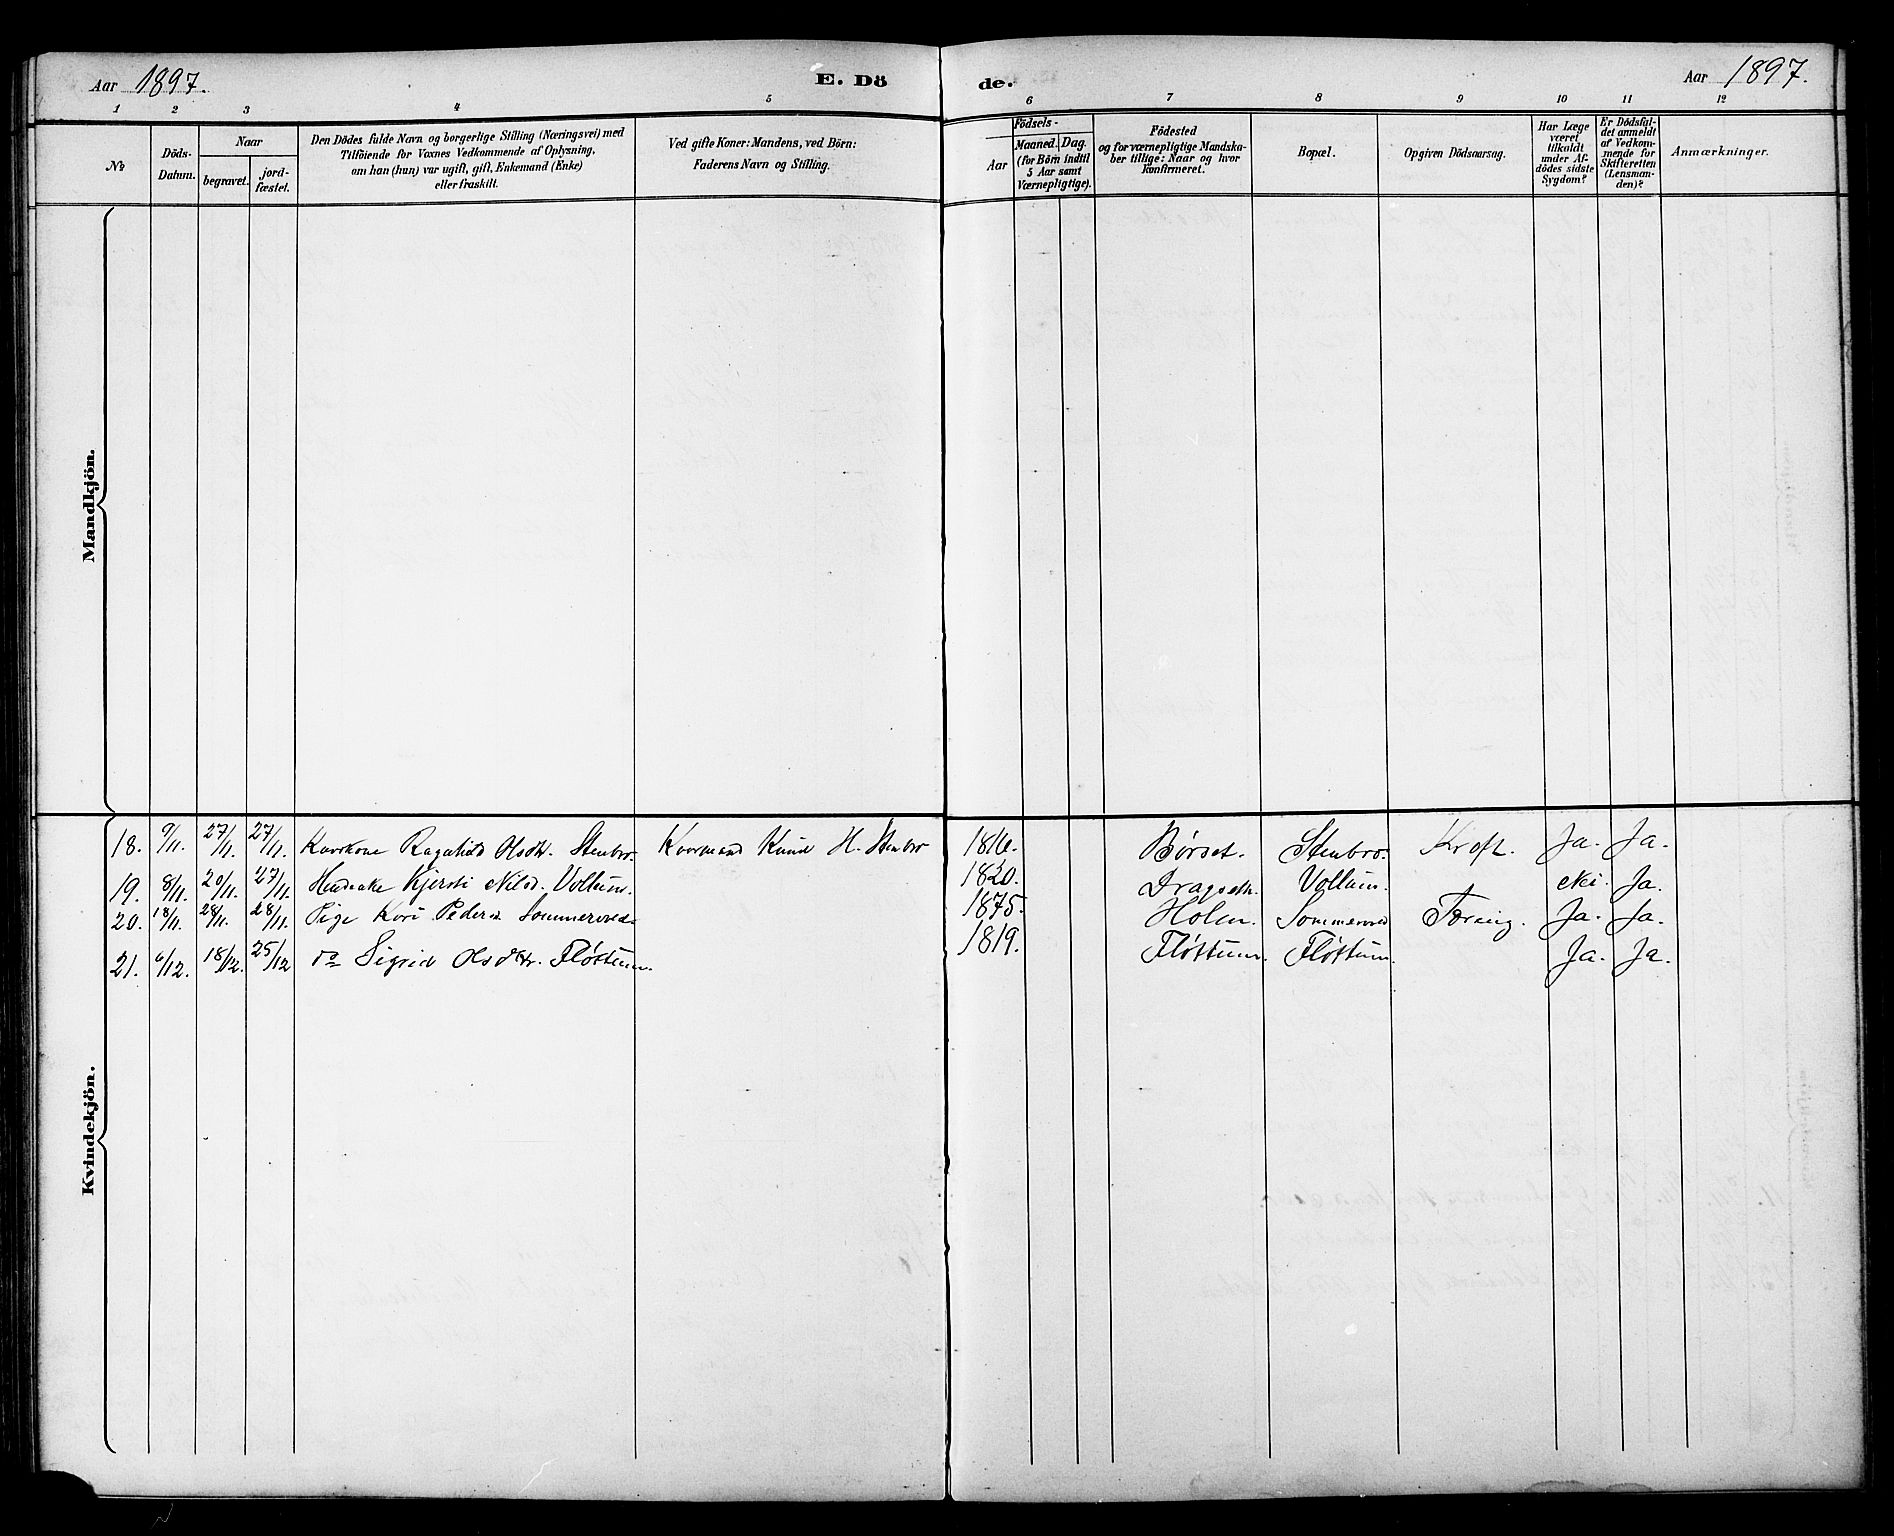 Aar 1897. E. Dö de. Aar 1897.
1 2 3 4 5 6 7 8 9 10 11 12
No
Döds-Datum.
Naar
begravet.
jord-fæstet.
Den Dödes fulde Navn og borgerlige Stilling (Næringsvei) med
Tilföiende for Voxnes Vedkommende af Oplysning,
om han (hun) var ugift, gift, Enkemand (Enke)
eller fraskilt.
Ved gifte Koner: Mandens, ved Börn:
Faderens Navn og Stilling.
Födsels-
Aar
Maaned. Dag.
(for Börn indtil
5 Aar samt
Værnepligtige).
Födested
og for værnepligtige Mandska-
ber tillige: Naar og hvor
konfirmeret.
Bopæl.
Opgiven Dödsaarsag.
Har Læge
været
tilkaldt
under Af-
dödes sidste
Sygdom?
Er Dödsfal-
det anmeldt
af Vedkom-
mende for
Skifteretten
(Lensman-
den)?
Anmærkninger.
Mandkjön.
Kvindekjön.
18. 9/11. 27/11. 27/11. Ragnhild Olsdtr. Stenbro. Knud H. Stenbro 1816. Børset. Stenbro. Kræft. Ja. Ja.
19. 8/11. 20/11. 27/11. Kjersti Nilsd. Vollum. 1820. Dragseth. Vollum. Nei. Ja.
20. 18/11. 28/11. 28/11. Pige Kari Pedersd. 1875. Holen. Tæring. Ja. Ja.
21. 6/12. 18/12. 25/12 do Sigrid Olsdtr. Fløttum. 1819. Fløttum. Fløttum. Ja. Ja.